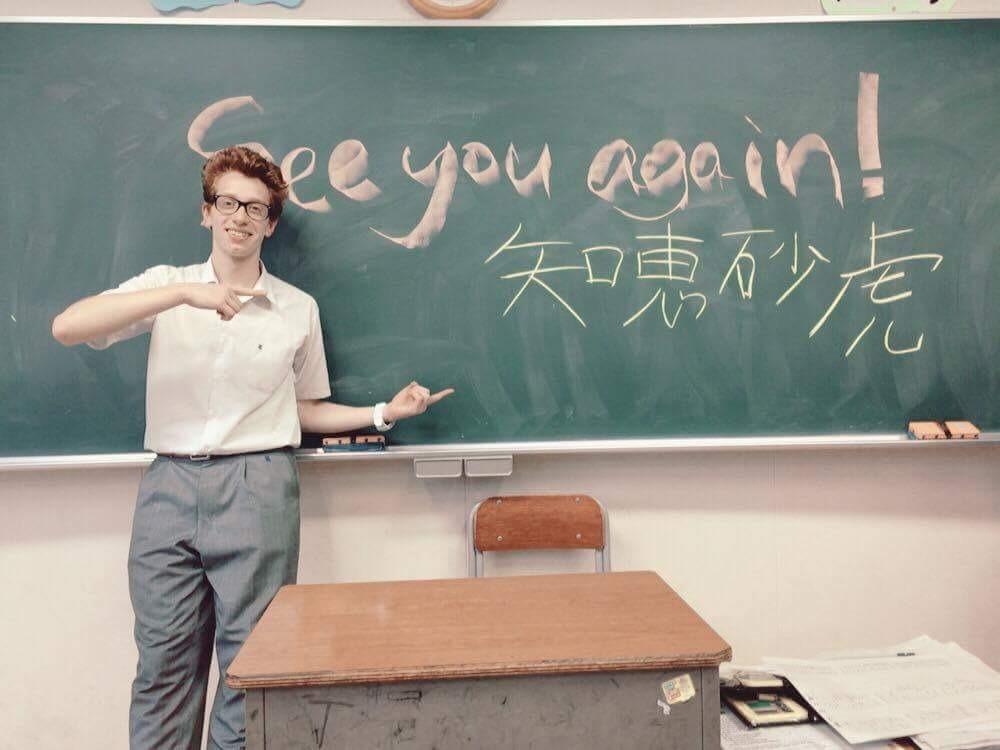 See you again!
知恵砂虎